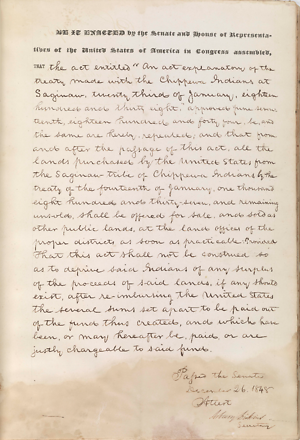 BE IT ENACTED by the Senate and House of Representa-
tives of the United States of America in Congress assembled,
THAT the act entitled "An act explanatory of the
treaty made with the Chippewa Indians at
Saginaw, twenty third of January, eighteen
hundred and thirty eight, approved June seven
teenth, eighteen hundred and forty four, be, and
the same are hereby, repealed, and that from
and after the passage of this act, all the
lands purchased by the United States from
the Saginaw tribe of Chippewa Indians by the
treaty of the fourteenth of January, one thousand
eight hundred and thirty seven, and remaining
unsold, shall be offered for sale, and sold as
other public lands, at the land offices of the
proper districts as soon as practicable: Provided
That this act shall not be construed so
as to deprive said Indians of any surplus
of the proceeds of said lands, if any should
exist, after re-imbursing the United States
the several sums set apart to be paid out
of the fund thus created, and which have
been, or may hereafter be, paid or are
justly chargeable to said fund.
Passed the Senate
December 26, 1845
Attest
Secretary